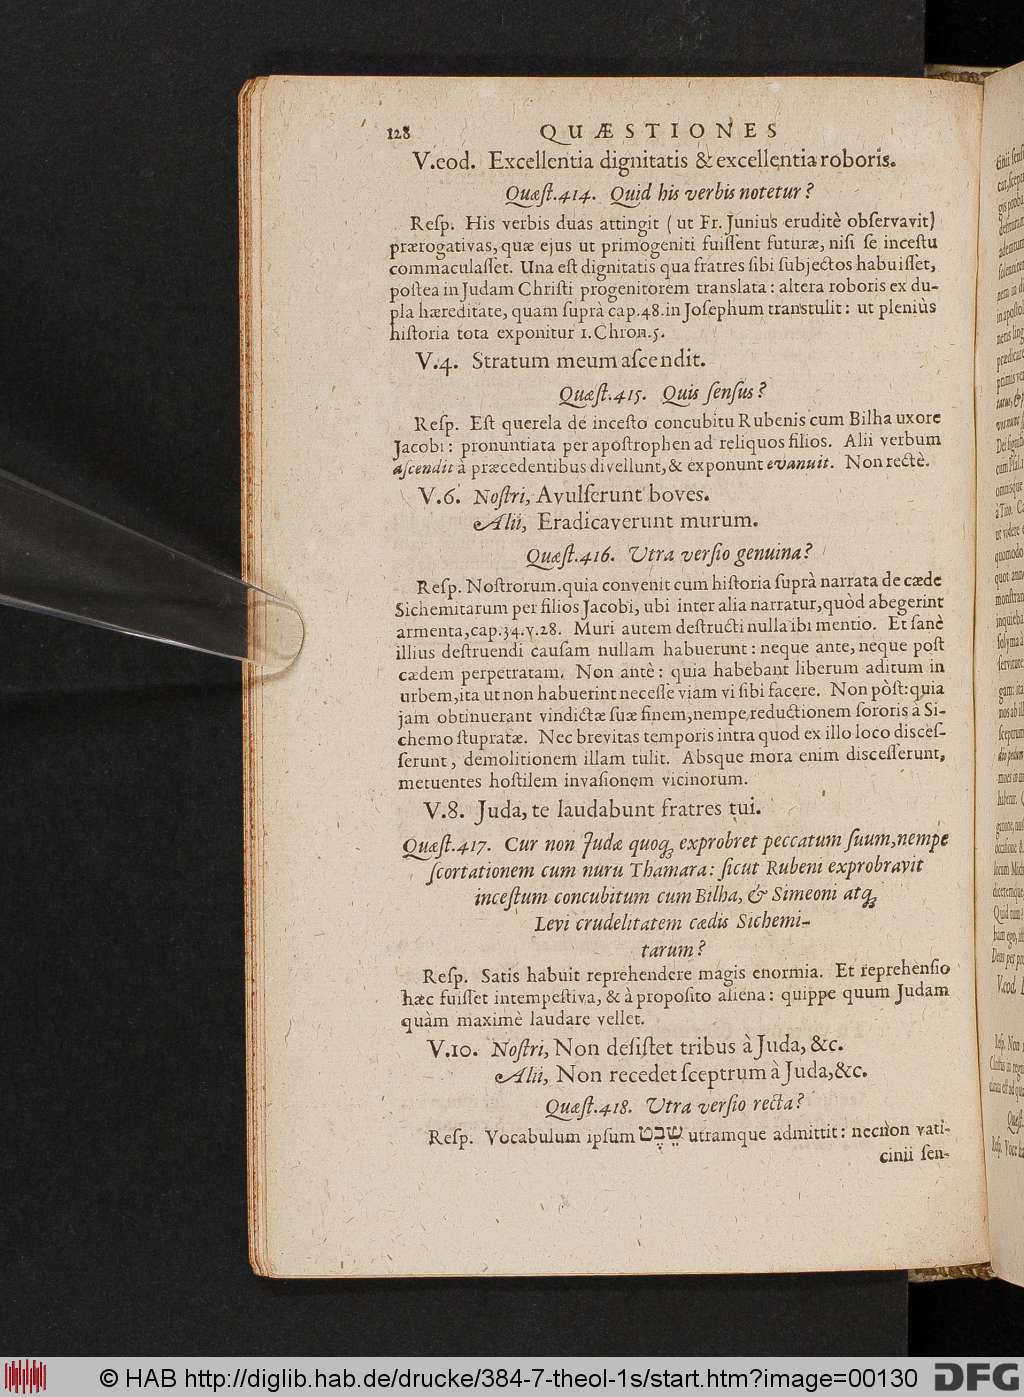 128 QUÆSTIONES
V.eod. Excellentia dignitatis & excellentia roboris.
Quæſt.414. Quid his verbis notetur?
Reſp. His verbis duas attingit (ut Fr. Junius eruditè obſervavit)
prærogativas, quæ ejus ut primogeniti fuiſſent futuræ, niſi ſe inceſtu
commaculaſſet. Una eſt dignitatis qua fratres ſibi ſubjectos habuiſſet,
poſtea in Judam Chriſti progenitorem translata: altera roboris ex du-
pla hæreditate, quam ſuprà cap.48. in Joſephum transtulit: ut pleniùs
hiſtoria tota exponitur 1. Chron.5.
V.4. Stratum meum aſcendit.
Quæſt.415. Quis ſenſus?
Reſp. Eſt querela de inceſto concubitu Rubenis cum Bilha uxore
Jacobi: pronuntiata per apoſtrophen ad reliquos filios. Alii verbum
aſcendit à præcedentibus divellunt, & exponunt evanuit. Non rectè.
V.6. Noſtri, Avulſerunt boves.
Alii, Eradicaverunt murum.
Quæſt.416. Utra verſio genuina?
Reſp. Noſtrorum. quia convenit cum hiſtoria ſuprà narrata de cæde
Sichemitarum per filios Jacobi, ubi inter alia narratur, quòd abegerint
armenta, cap.34.v.28. Muri autem deſtructi nulla ibi mentio. Et ſanè
illius deſtruendi cauſam nullam habuerunt: neque ante, neque poſt
cædem perpetratam. Non antè: quia habebant liberum aditum in
urbem, ita ut non habuerint neceſſe viam vi ſibi facere. Non pòſt: quia
jam obtinuerant vindictæ ſuæ finem, nempe reductionem ſororis à Si-
chemo ſtupratæ. Nec brevitas temporis intra quod ex illo loco disceſ-
ſerunt, demolitionem illam tulit. Absque mora enim disceſſerunt,
metuentes hoſtilem invaſionem vicinorum.
V.8. Juda, te laudabunt fratres tui.
Quæſt.417. Cur non Judæ quoq; exprobret peccatum ſuum, nempe
ſcortationem cum nuru Thamara: ſicut Rubeni exprobravit
inceſtum concubitum cum Bilha, & Simeoni atq;
Levi crudelitatem cædis Sichemi-
tarum?
Reſp. Satis habuit reprehendere magis enormia. Et reprehenſio
hæc fuiſſet intempeſtiva, & à propoſito aliena: quippe quum Judam
quàm maximè laudare vellet.
V.10. Noſtri, Non deſiſtet tribus à Juda, &c.
Alii, Non recedet ſceptrum à Juda, &c.
Quæſt.418. Utra verſio recta?
Reſp. Vocabulum ipſum שֵׁבֶט utramque admittit: necnon vati-
cinii ſen-
© HAB http://diglib.hab.de/drucke/384-7-theol-1s/start.htm?image=00130
DFG